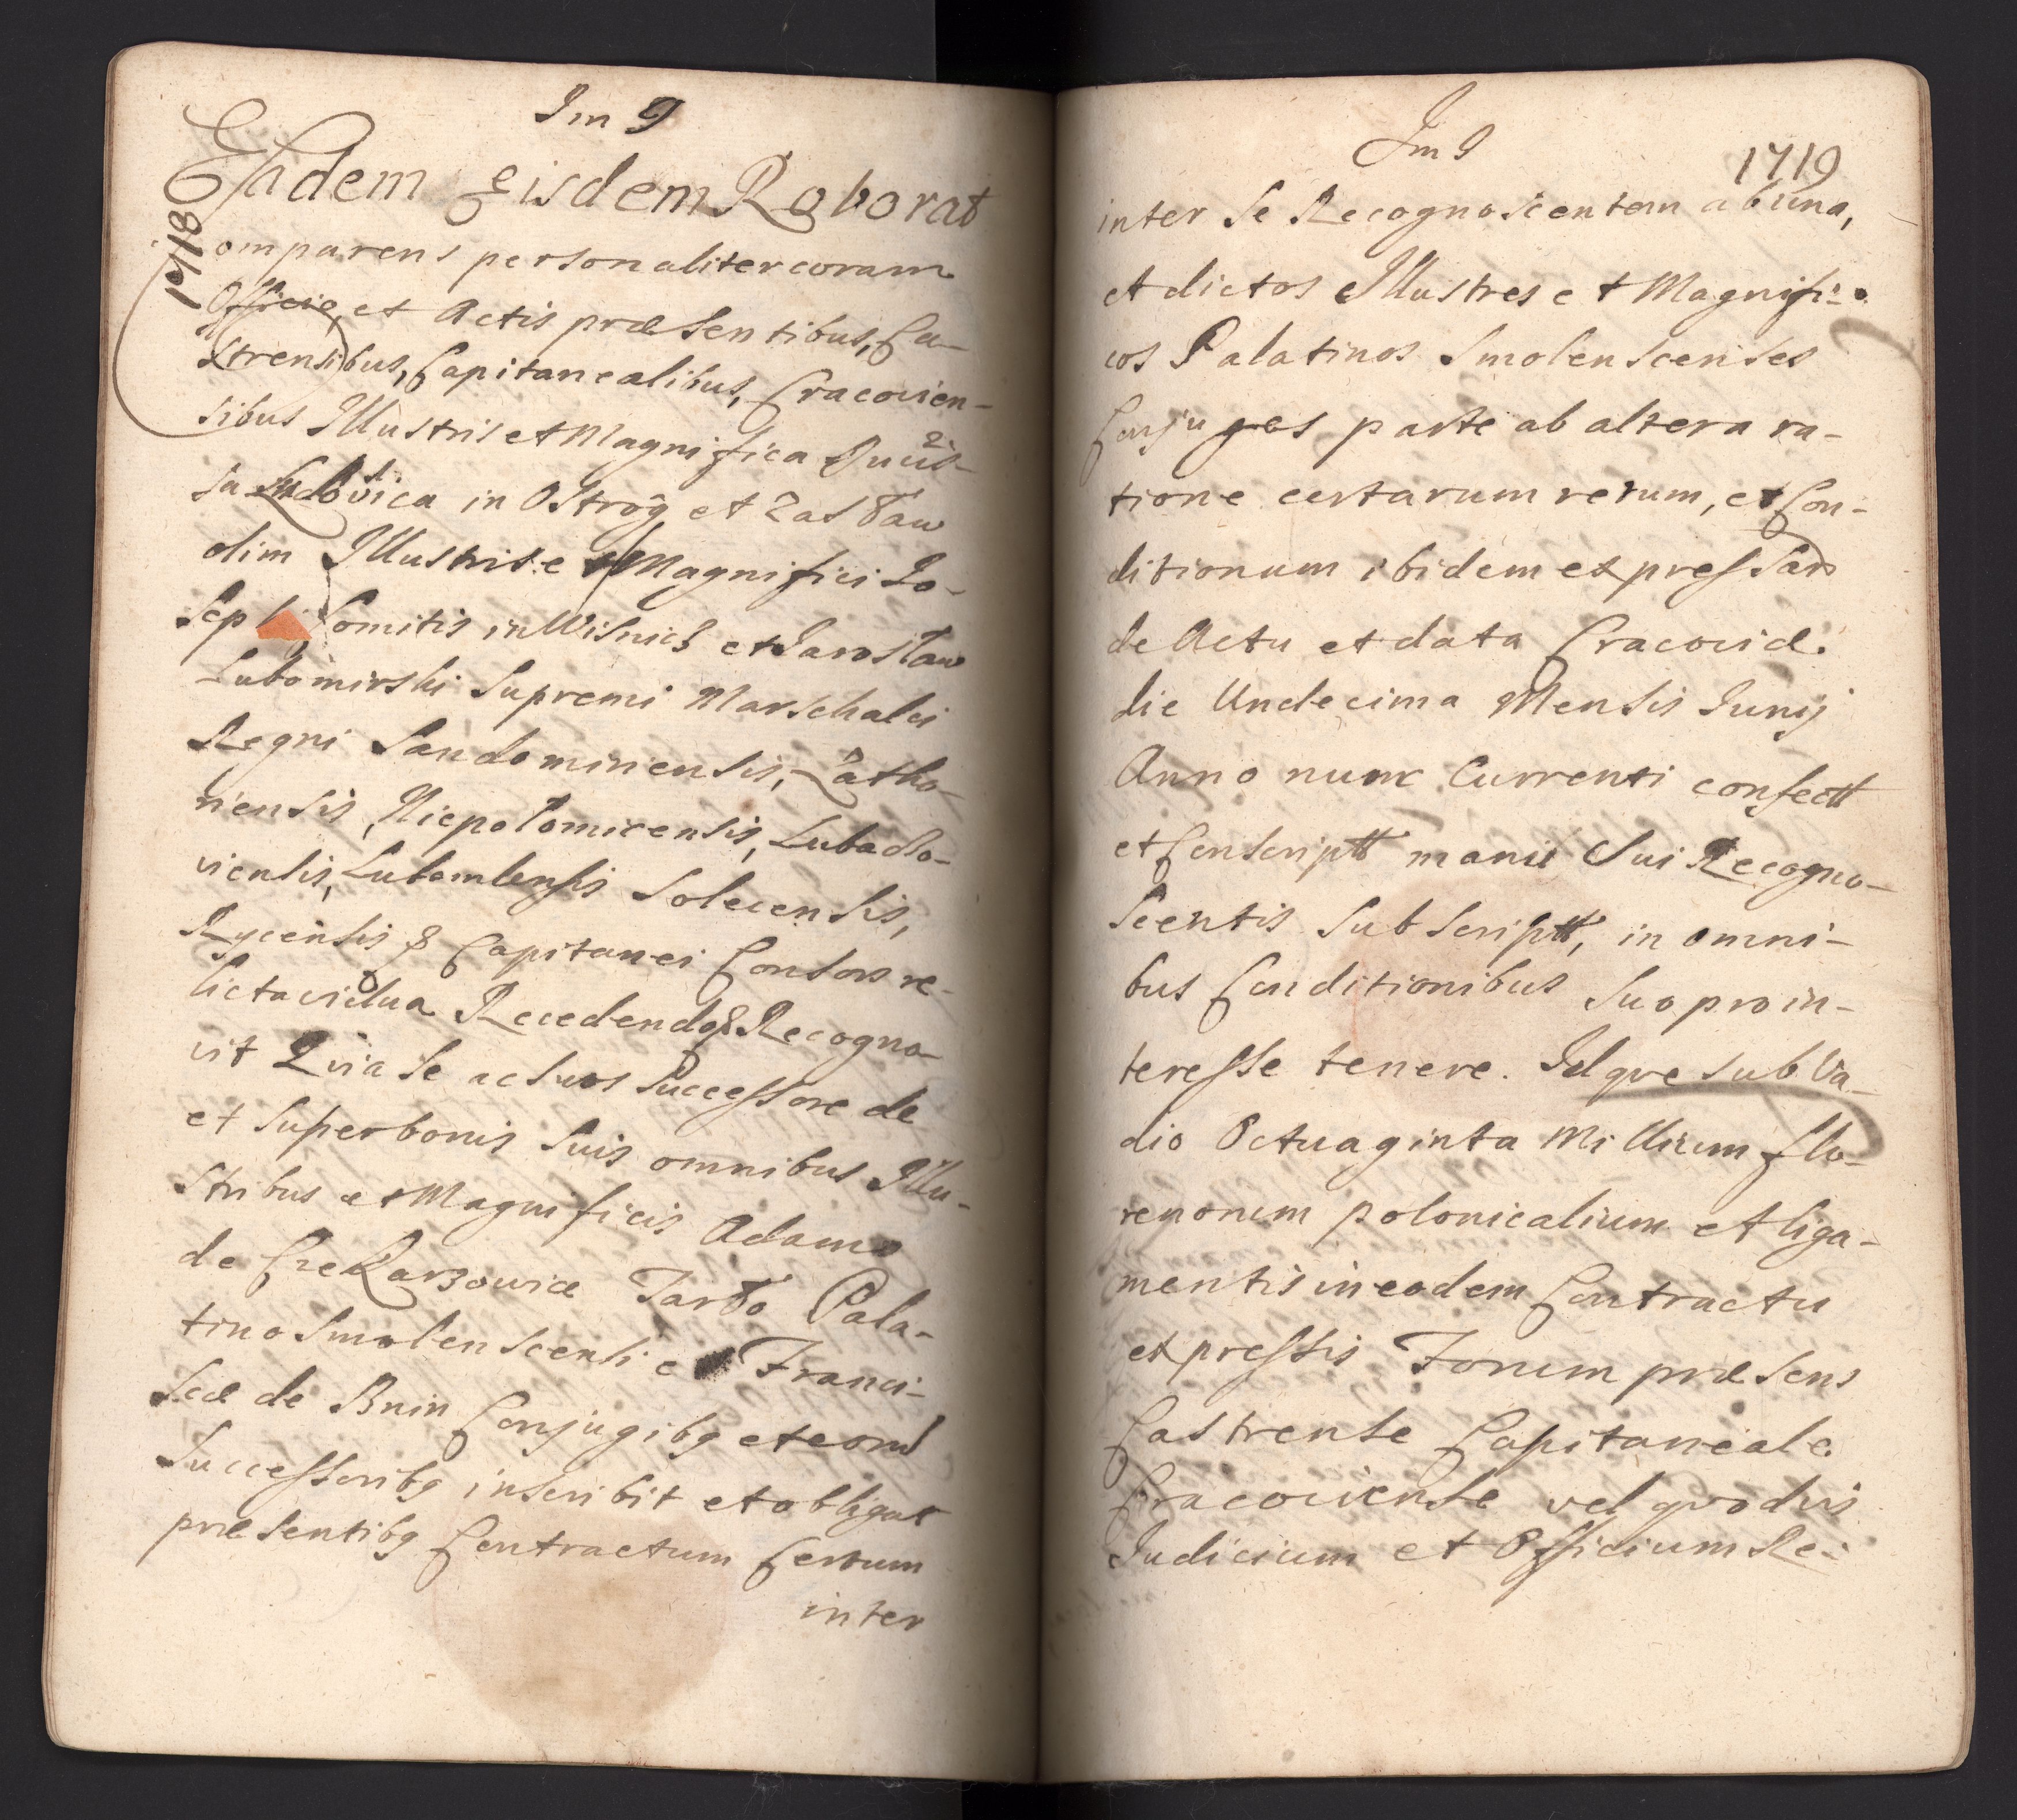 Im 9
Eadem Eisdem Roborat
1718
Comparens personaliter coram
Officio, et Actis præsentibus, Ca-
strensibus, Capitanealibus, Cracovien-
sibus Illustris et Magnifica
sa Ludovica in Ostrog et Zasław
olim Illustris et Magnifici Jo-
seph Comitis in Wisnicz et Jarosław
Lubomirski Supremi Marschalci
Regni Sandomiriensis, Zatho-
riensis, Niepołomicensis, Lubaclo-
viensis, Lubomlensis Solecensis,
Rycensis & Capitanei Consors re-
licta vidua Recedendo & Recogno-
vit Quia Se ac Suos Successore de
et Super bonis Suis omnibus Illu-
stribus et Magnificis Adamo
de Czekarzowice Tarło Pala-
tino Smolenscensi et Franci-
scæ de Bnin Conjugibg et eorud
Successoribg inscribit et obligat
præsentibg Contractum Certum
inter
Im 9
1719
inter Se Recognoscentem ab una,
et dictos Illustres et Magnifi-
cos Palatinos Smolenscenses
Conjuges parte ab altera ra-
tione certarum rerum, et Con-
ditionum ibidem expressar
de Actu et data Cracoviæ
die Undecima Mensis Junij
Anno nunc Currenti confectt
et Conscriptt manu Sui Recogno-
scentis Subscriptt, in omni-
bus Conditionibus Suo pro in-
teresse tenere. Idqve sub Va-
dio Octuaginta Millium flo-
renorum polonicalium et liga-
mentis in eodem Contractu
expressis Forum præsens
Castrense Capitaneale
Cracoviense vel qvodvis
Judicium et Officium Re-